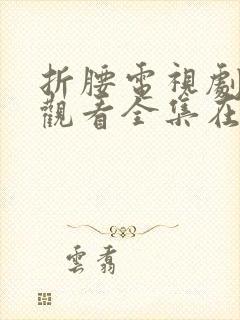 折腰電視劇
觀看全集在
雲翥